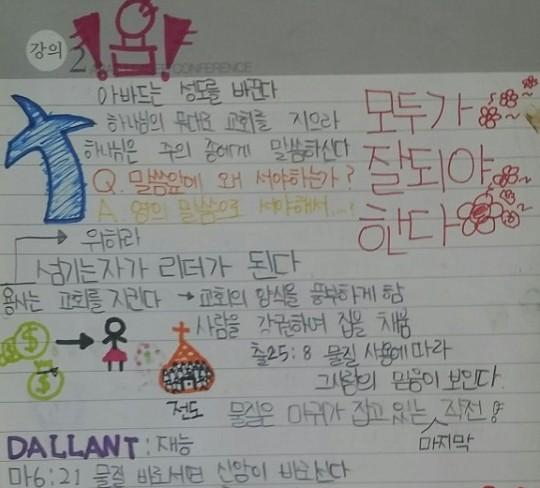 강의 2
CONFERENCE
아바드는 성도를 바꾼다
하나님의 무대요 교회를 지으라
하나님은 주의 종에게 말씀하신다
Q. 말씀앞에 왜 서야하는가?
A. 영의 말씀으로 서야해서...!
모두가
잘되야
한다
위하리
섬기는자가 리더가 된다
용사는 교회를 지킨다 → 교회의 양식을 풍부하게 함
사람을 강권하여 집을 채움
출25:8 물질 사용에 따라
그사람의 믿음이 보인다.
전도 물질은 마귀가 잡고 있는 작전
마지막
DALLANT : 재능
마6:21 물질 바로서면 신앙이 바로선다